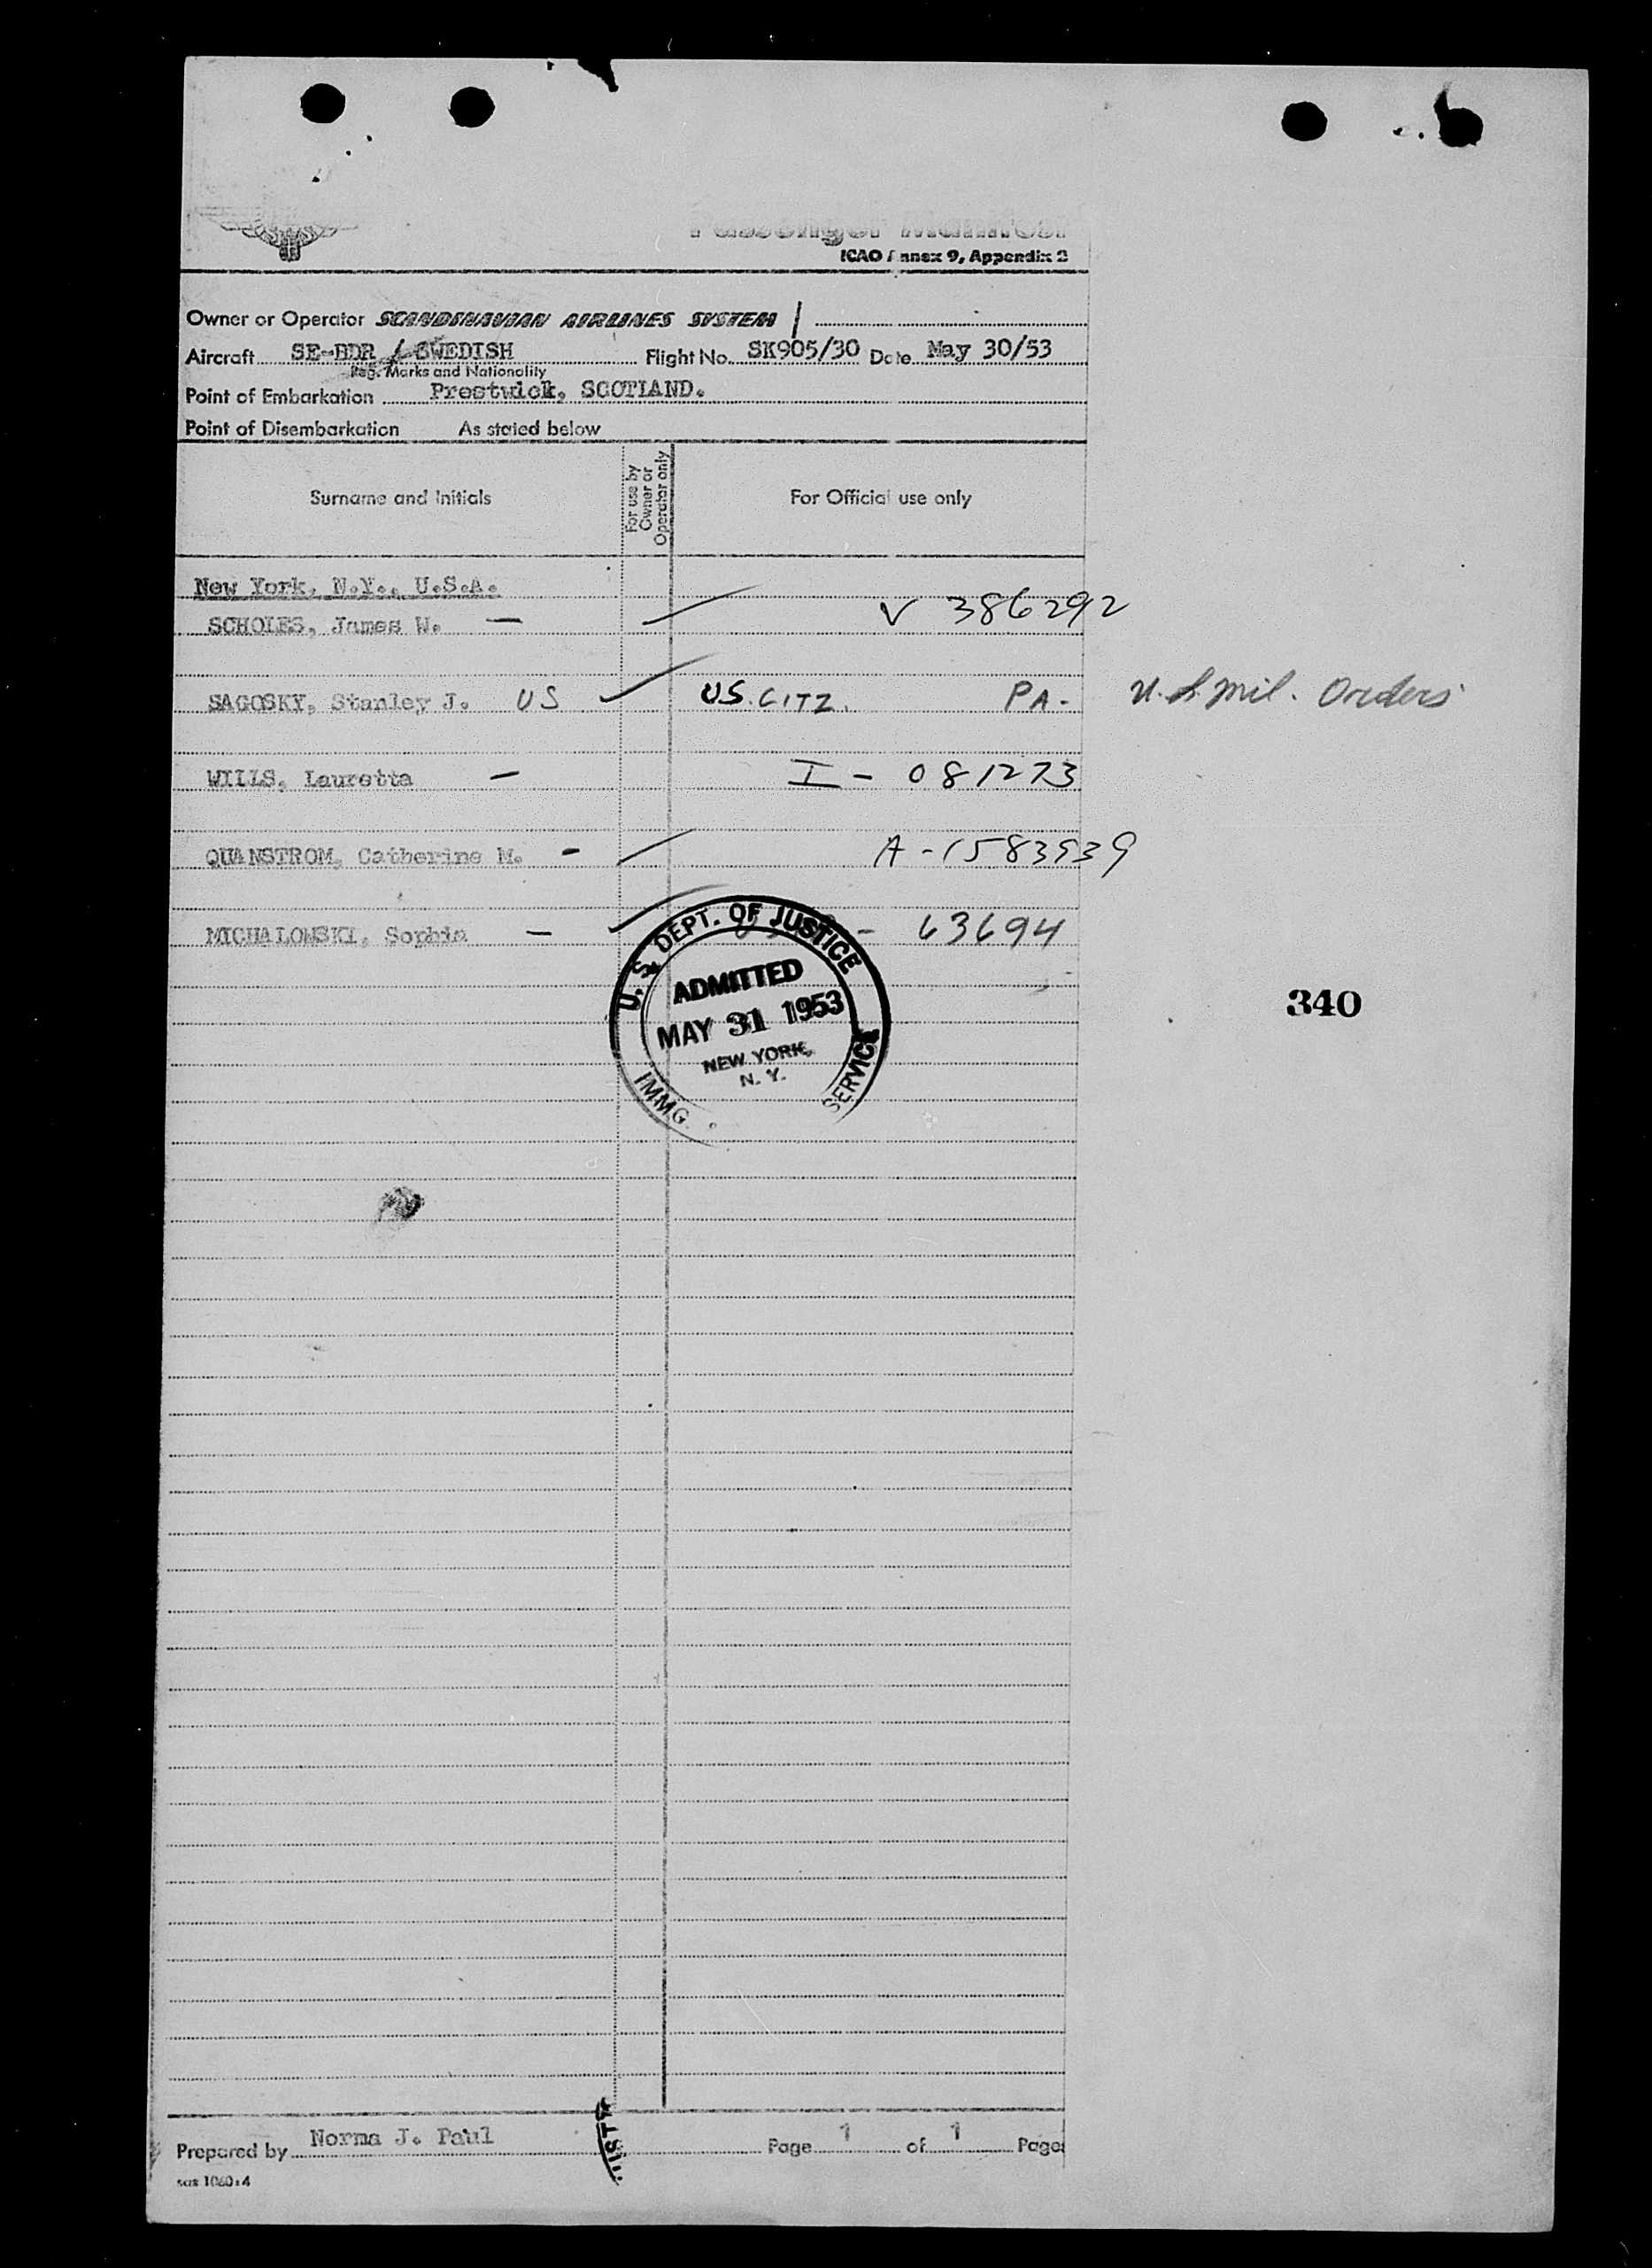 Passenger Manifest
ICAO Annex 9, Appendix 2
Owner or Operator SCANDINAVIAN AIRLINES SYSTEM
Aircraft SE-BDR / SWEDISH Flight No. SK905/30 Date May 30/53
Reg. Marks and Nationality
Point of Embarkation Prestwick, SCOTLAND.
Point of Disembarkation As stated below
Surname and Initials For use by Owner or Operator only For Official use only
New York, N.Y., U.S.A.
SCHOLES, James W. — V 386292
SAGOSKY, Stanley J. US US. CITZ. PA- U.S. Mil. Orders
WILLS, Lauretta — I - 081273
QUANSTROM, Catherine M. - A-1583939
MICHALOWSKI, Sophia — - 63694
U. S. DEPT. OF JUSTICE
ADMITTED
MAY 31 1953
NEW YORK,
N. Y.
IMMG. SERVICE
340
Prepared by Norma J. Paul Page 1 of 1 Pages
sas 1060:4